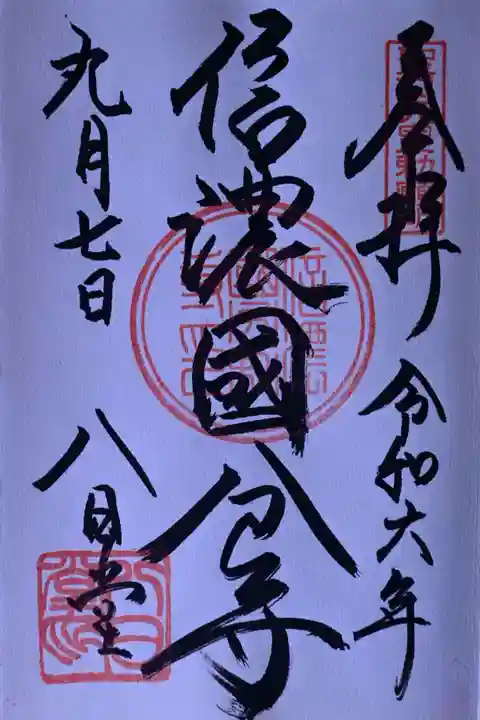 奉拝 令和六年
信濃國分寺
九月七日
八日堂